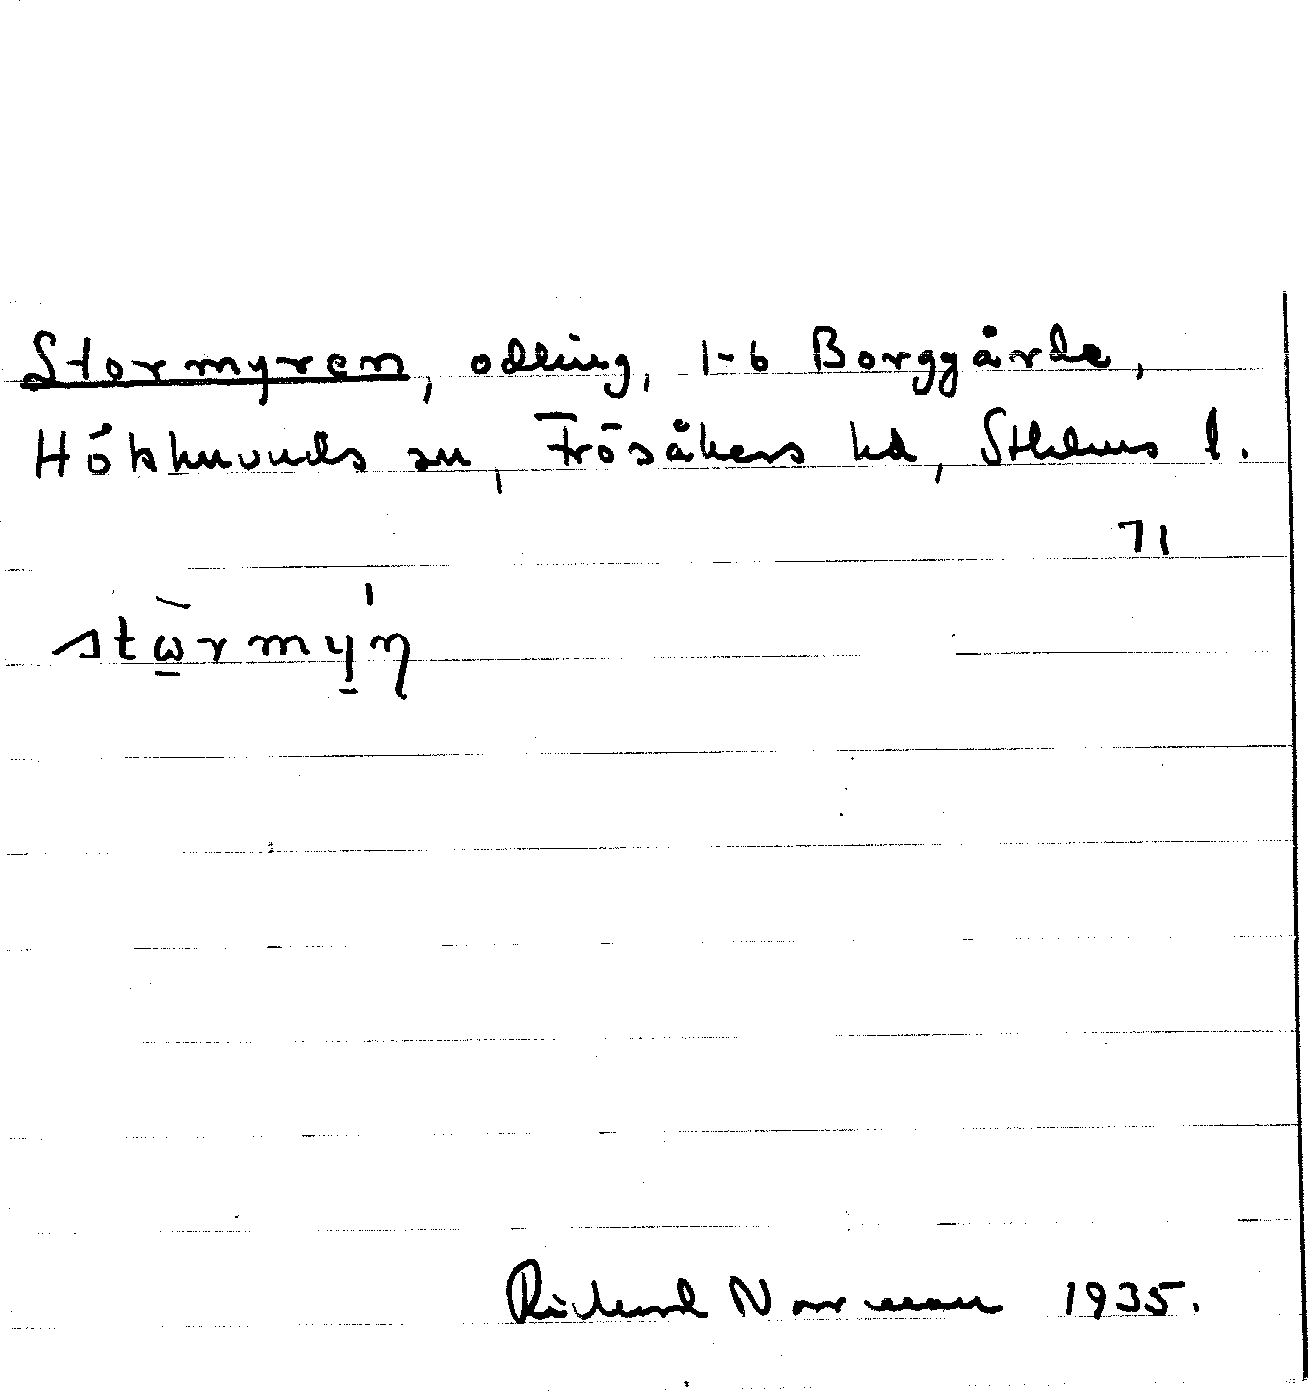 Stormyren, odling, 1-6 Borggårde,
Hökhuvuds sn, Frösåkers hd, Sthlms l.
71
stὼ̲rmý̲n̥
Richard Norrman 1935.